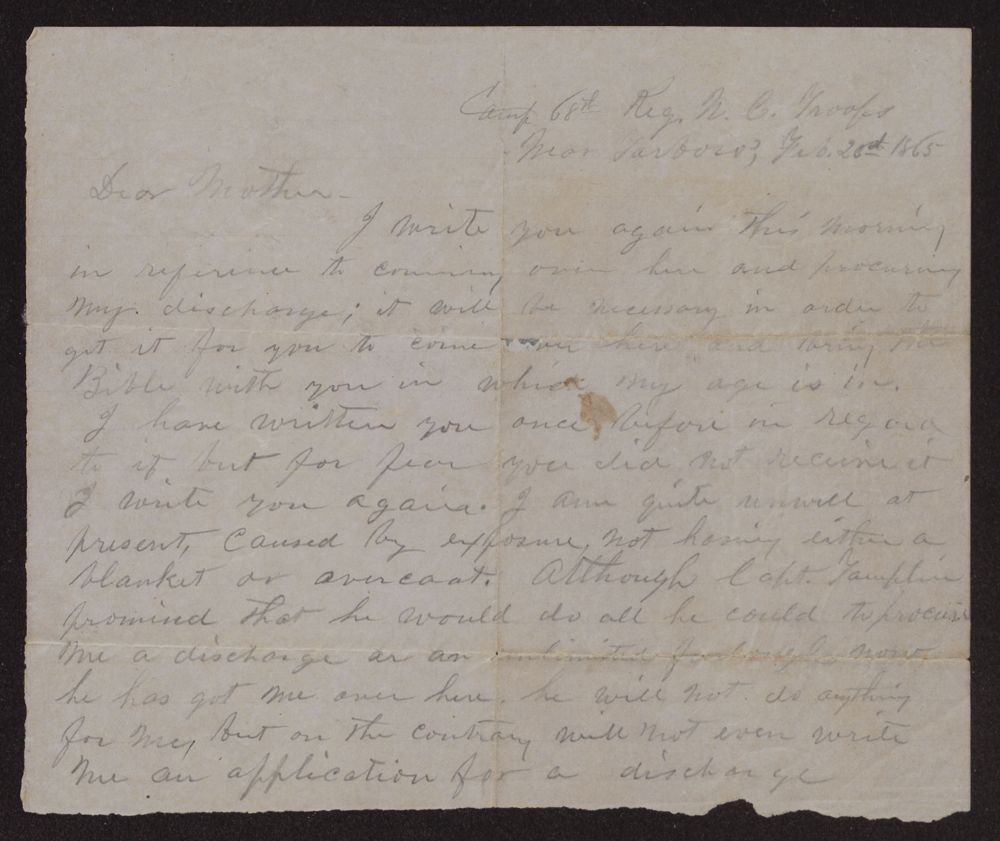 Camp 68th Reg. N. C. Troops
Near Tarboro, Feb. 20d 1865
Dear Mother-
I write you again this morning
in reference to coming over here and procuring
my discharge; it will be necessary in order to
get it for you to come over here and bring the
Bible with you in which my age is in.
I have written you once before in regard
to it but for fear you did not receive it
I write you again. I am quite unwell at
present, caused by exposure, not having either a
blanket or overcoat. Although Capt. Tamplin
promised that he would do all he could to procure
me a discharge or an unlimited furlough, now
he has got me over here, he will not do anything
for me, but on the contrary will not even write
me an application for a discharge